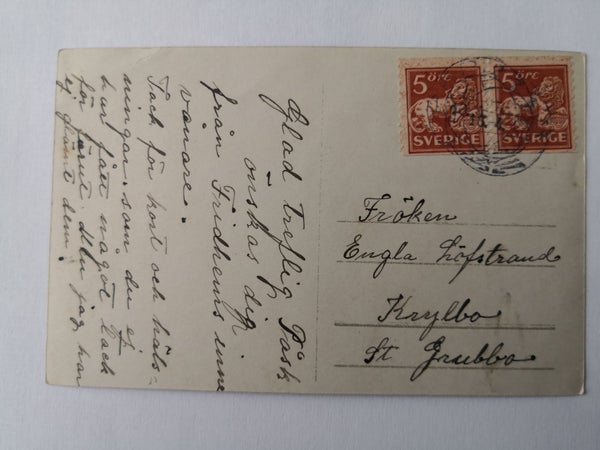 Glad treflig Påsk
önskas dig
från Fridhems inne
vånare.
Tack för kort och häls=
ningar som du ej
har fått något tack
för förut. du jag har
ej glömt dem.
5 ÖRE
SVERIGE
5 ÖRE
SVERIGE
Fröken
Engla Löfstrand
Krylbo
St Grubbo